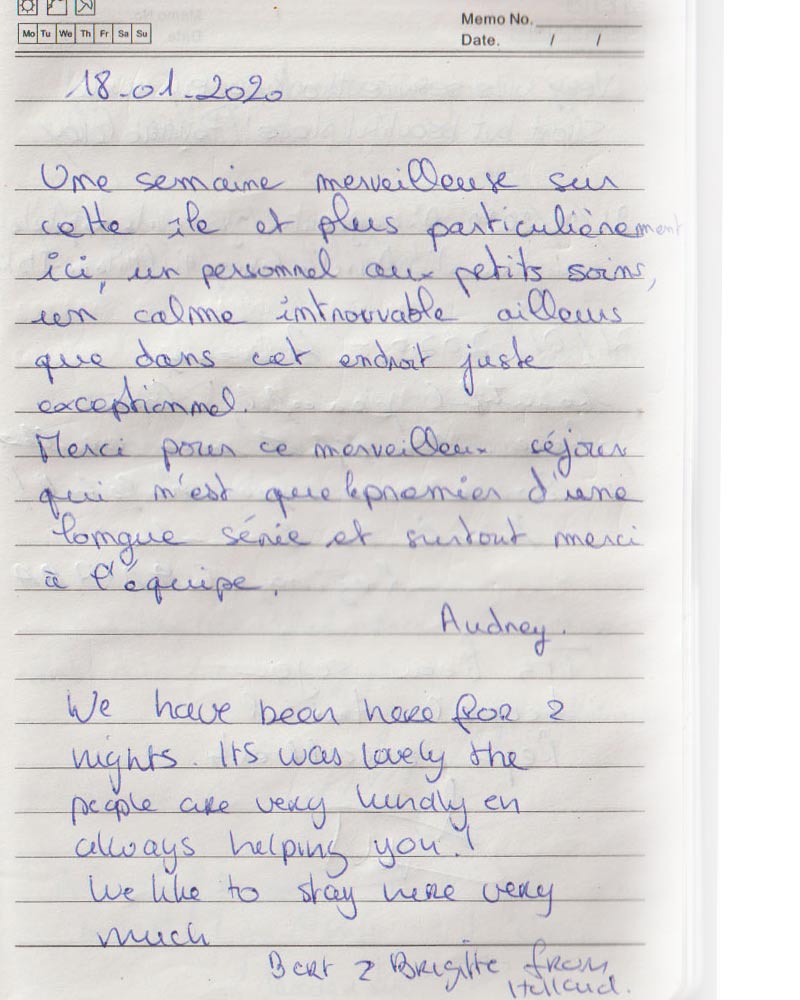 Mo Tu We Th Fr Sa Su
Memo No.
Date. / /
18-01-2020
Une semaine merveilleuse sur
cette île et plus particulièrement
ici, un personnel aux petits soins,
un calme introuvable ailleurs
que dans cet endroit juste
exceptionnel.
Merci pour ce merveilleux séjour
qui n'est que le premier d'une
longue série et surtout merci
à l'équipe.
Audrey.
We have been here for 2
nights. Its was lovely the
people are very kindly en
always helping you!
We like to stay here very
much
Bert & Brigitte from
Holland.